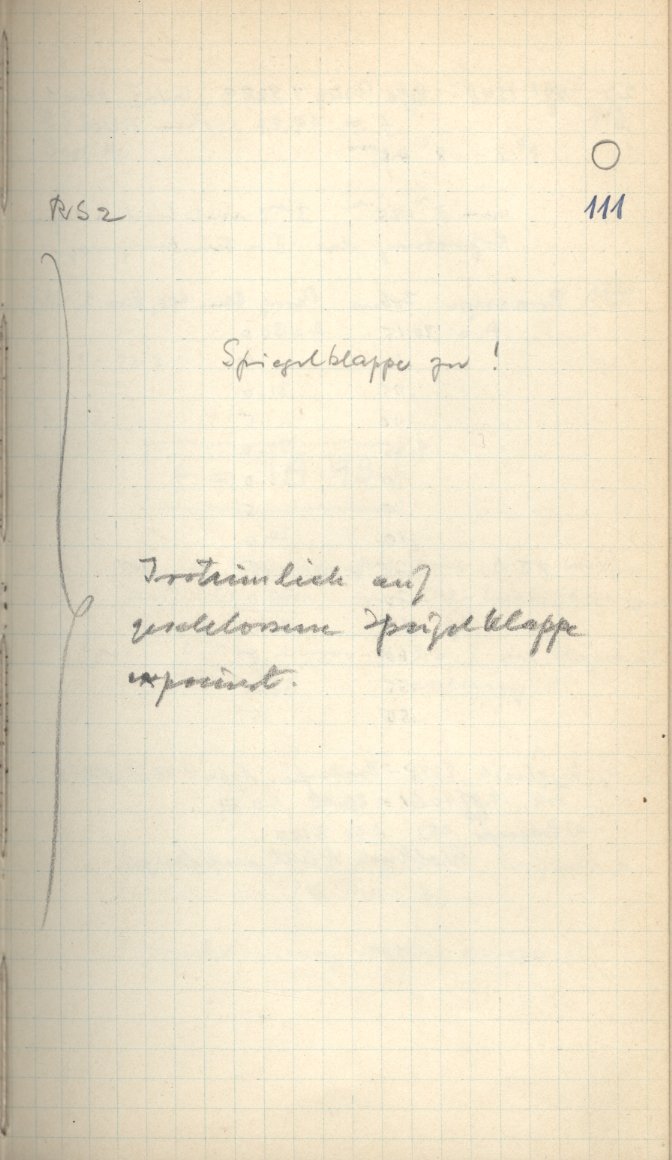 111
RS2
Spiegelklappe zu!
Irrtümlich auf
geschlossene Spiegelklappe
exponiert.